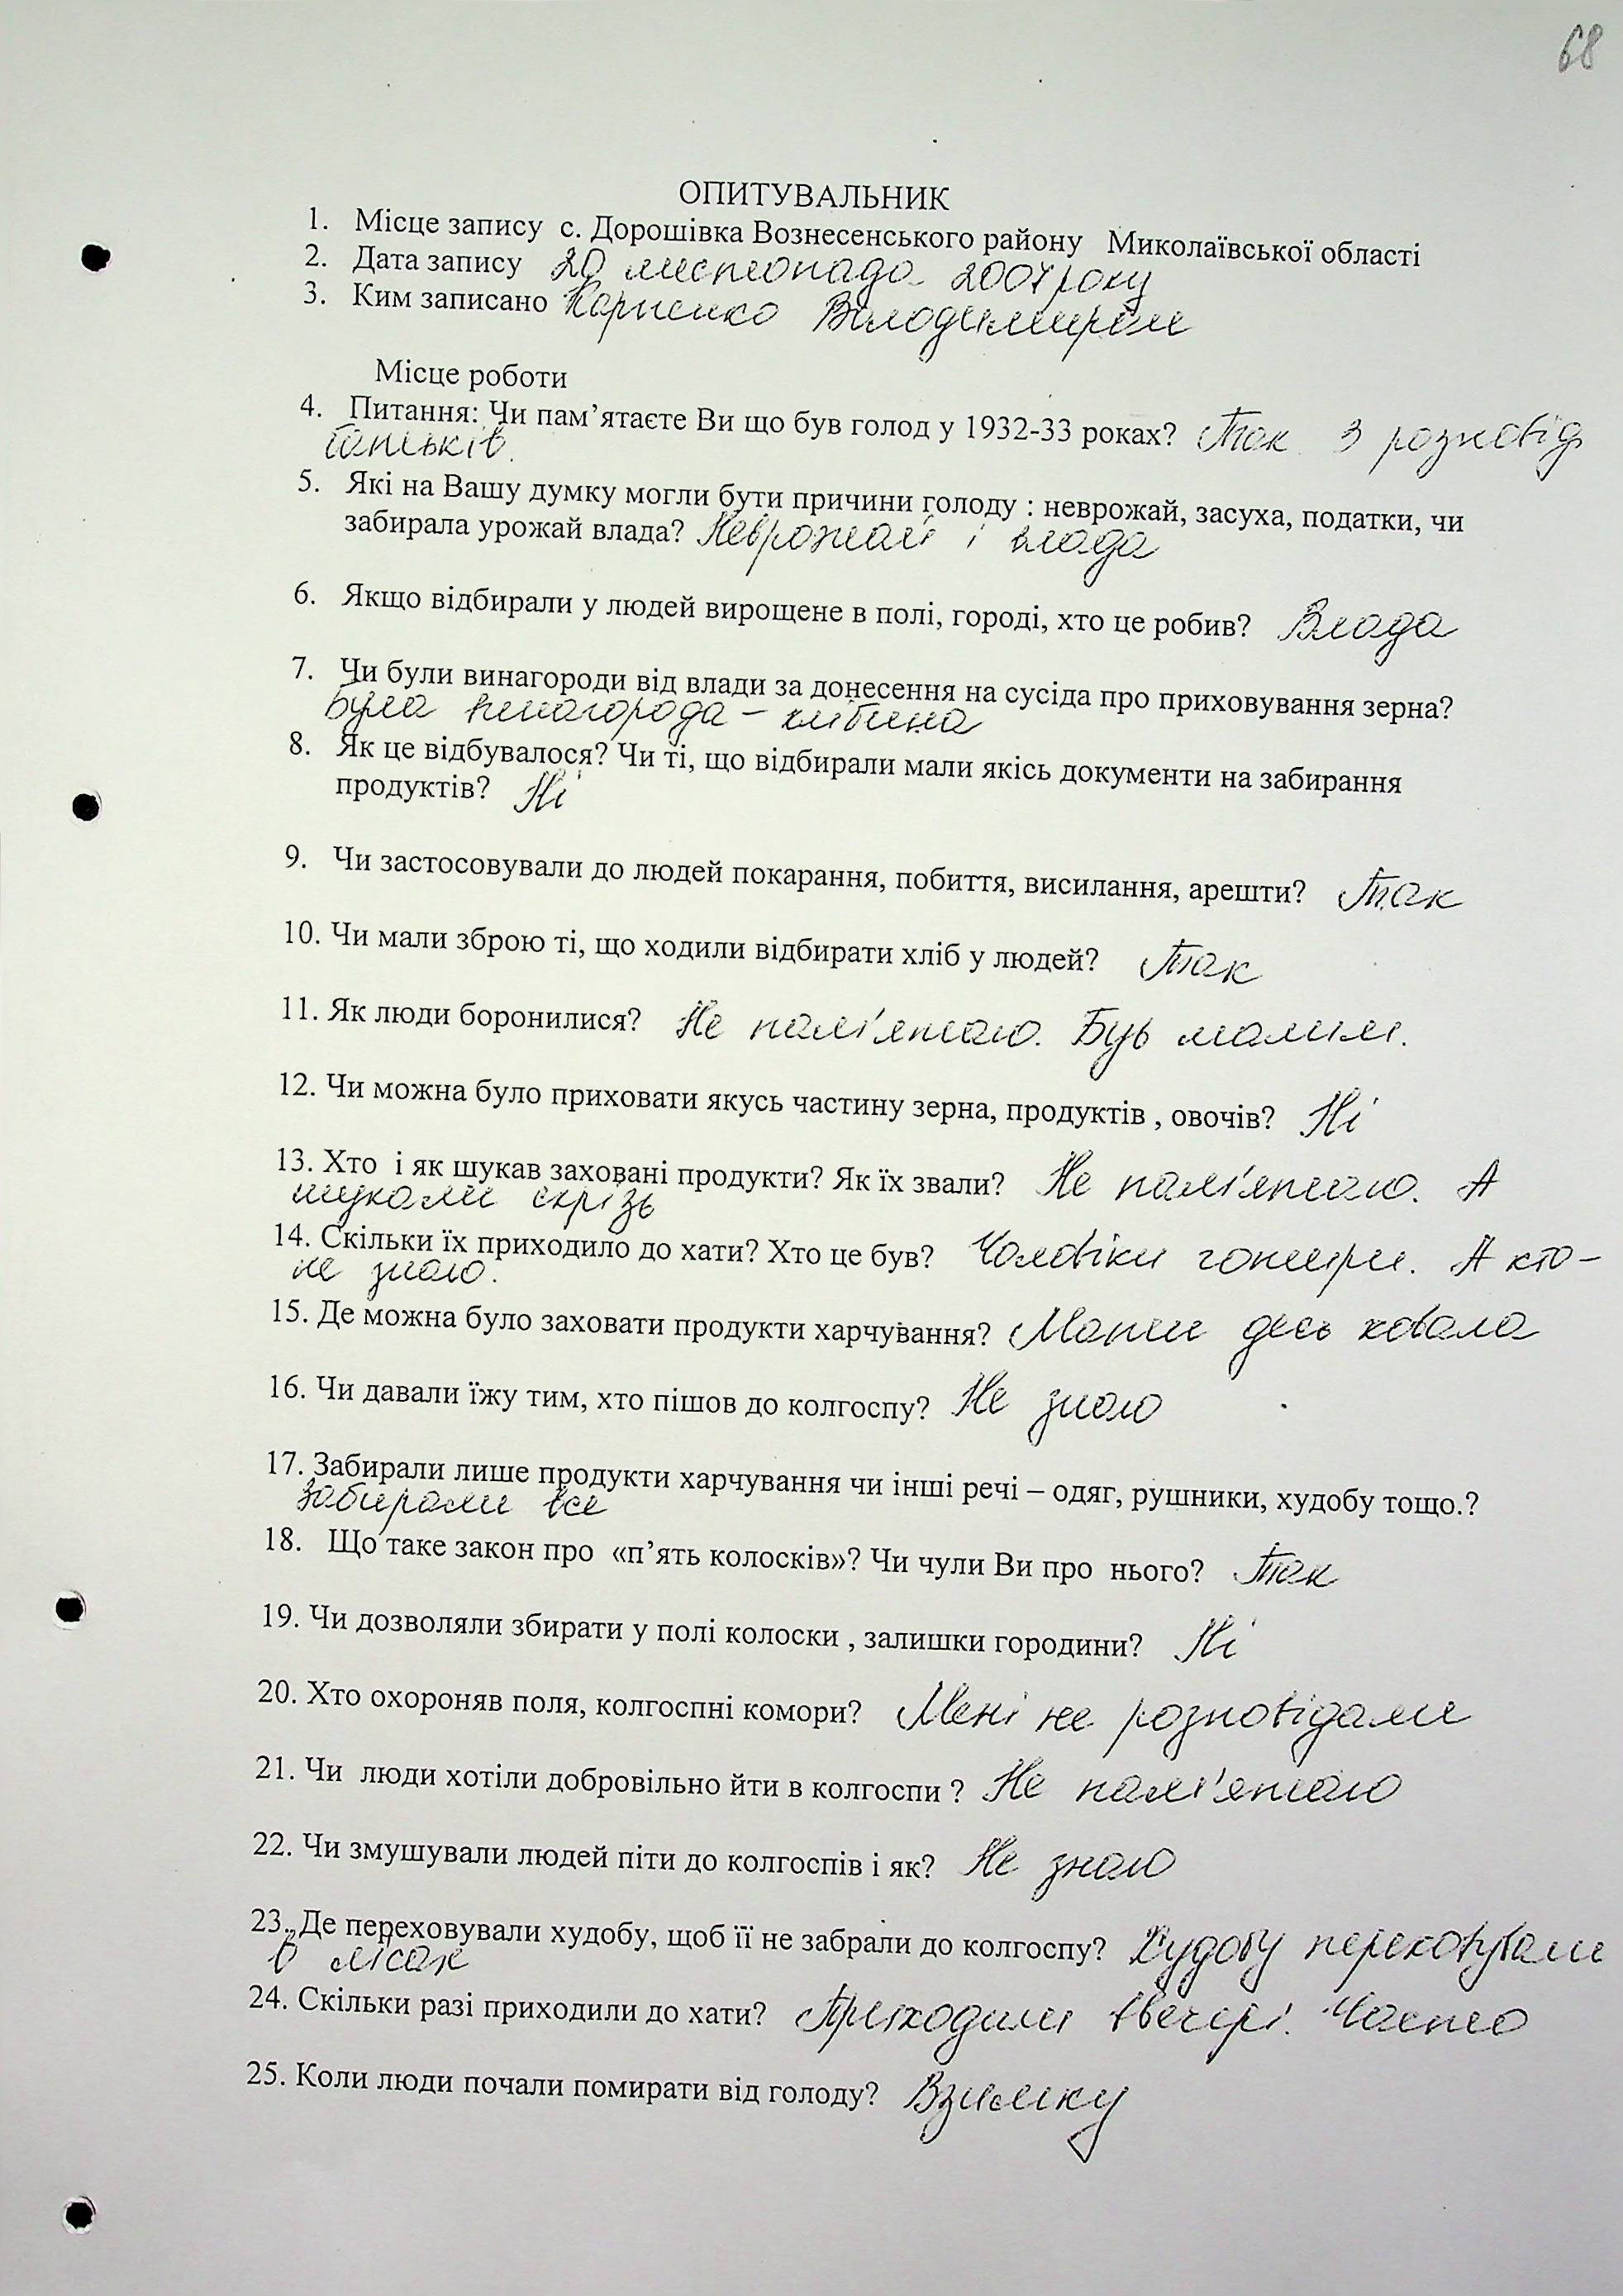 68
ОПИТУВАЛЬНИК
1. Місце запису с. Дорошівка Вознесенського району Миколаївської області
2. Дата запису 20 листопада 2007 року
3. Ким записано Карпенко Володимиром
Місце роботи
4. Питання: Чи пам’ятаєте Ви що був голод у 1932-33 роках? Так. З розповід
батьків.
5. Які на Вашу думку могли бути причини голоду : неврожай, засуха, податки, чи
забирала урожай влада? Неврожай і влада
6. Якщо відбирали у людей вирощене в полі, городі, хто це робив? Влада
7. Чи були винагороди від влади за донесення на сусіда про приховування зерна?
Була винагорода – хлібина
8. Як це відбувалося? Чи ті, що відбирали мали якісь документи на забирання
продуктів? Ні
9. Чи застосовували до людей покарання, побиття, висилання, арешти? Так
10. Чи мали зброю ті, що ходили відбирати хліб у людей? Так
11. Як люди боронилися? Не пам'ятаю. Був малим.
12. Чи можна було приховати якусь частину зерна, продуктів , овочів? Ні
13. Хто і як шукав заховані продукти? Як їх звали? Не пам'ятаю. А
шукали скрізь
14. Скільки їх приходило до хати? Хто це був? Чоловіки чотири. А хто –
не знаю.
15. Де можна було заховати продукти харчування? Мати десь ховала
16. Чи давали їжу тим, хто пішов до колгоспу? Не знаю
17. Забирали лише продукти харчування чи інші речі – одяг, рушники, худобу тощо.?
Забирали все
18. Що таке закон про «п’ять колосків»? Чи чули Ви про нього? Так
19. Чи дозволяли збирати у полі колоски , залишки городини? Ні
20. Хто охороняв поля, колгоспні комори? Мені не розповідали
21. Чи люди хотіли добровільно йти в колгоспи ? Не пам'ятаю
22. Чи змушували людей піти до колгоспів і як? Не знаю
23. Де переховували худобу, щоб її не забрали до колгоспу? Худобу переховували
в лісах
24. Скільки разі приходили до хати? Приходили ввечері. Часто
25. Коли люди почали помирати від голоду? Взимку